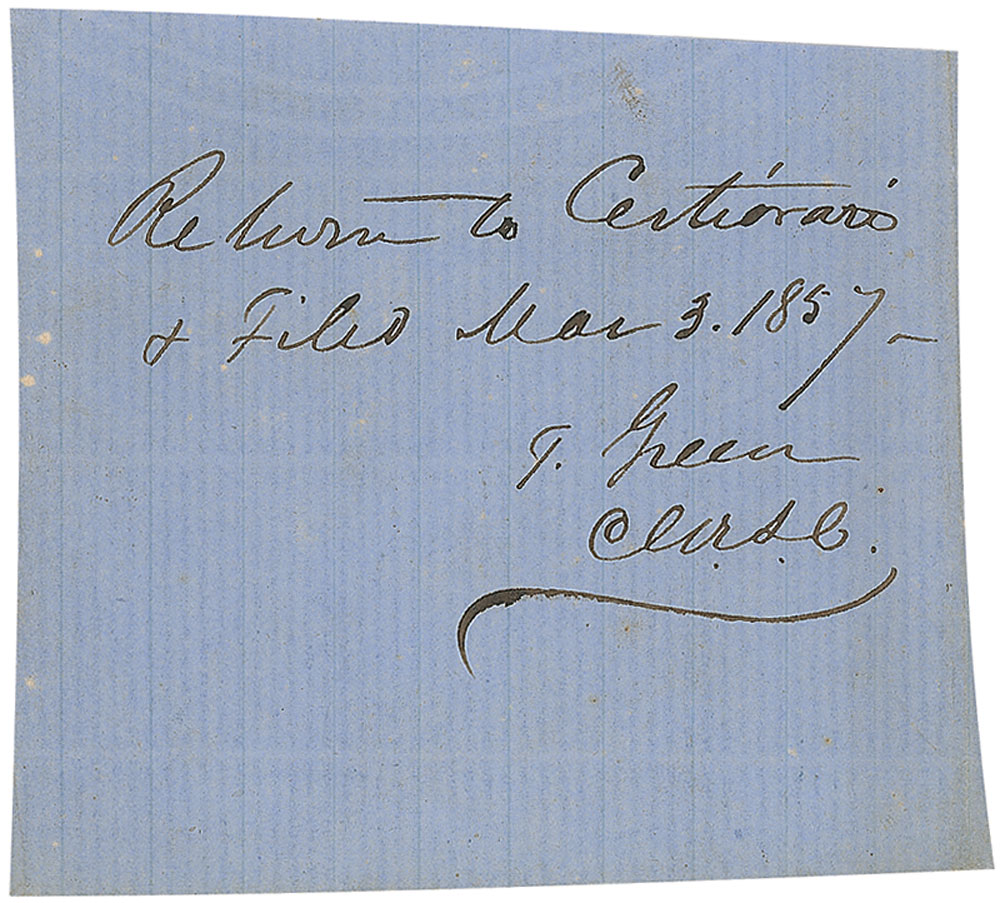 Return to Certiorari
& Filed Mar 3. 1857 –
T. Green
Clk S. C.